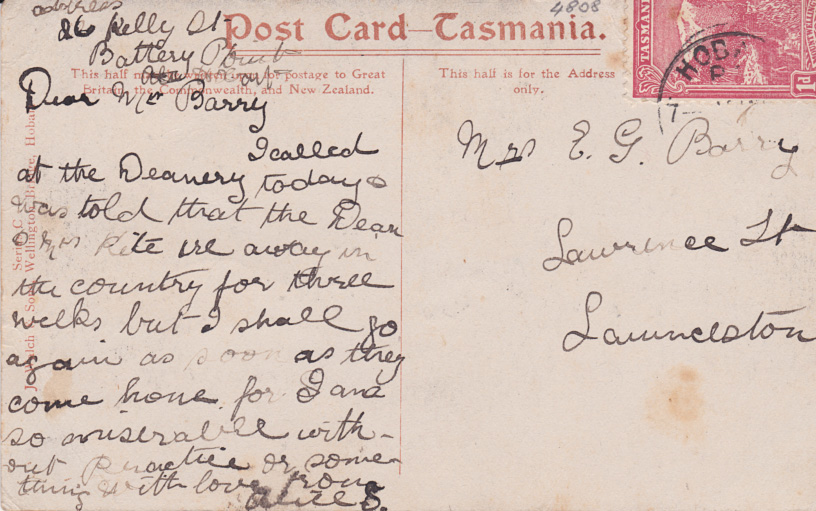 address
26 Kelly St
Battery Point
4808
Post Card—Tasmania.
This half may be used for postage to Great
Britain, the Commonwealth, and New Zealand.
This half is for the Address
only.
TASMANIA
1d
HOB
7
Dear Mrs Barry
I called
at the Deanery today &
was told that the Dean
& Mrs Kite are away in
the country for three
weeks but I shall go
again as soon as they
come home, for I am
so miserable with-
out practice or some-
thing with love from
Alice S.
Mrs E. G. Barry
Lawrence St
Launceston
Series C.
Wellington Bridge, Hoba